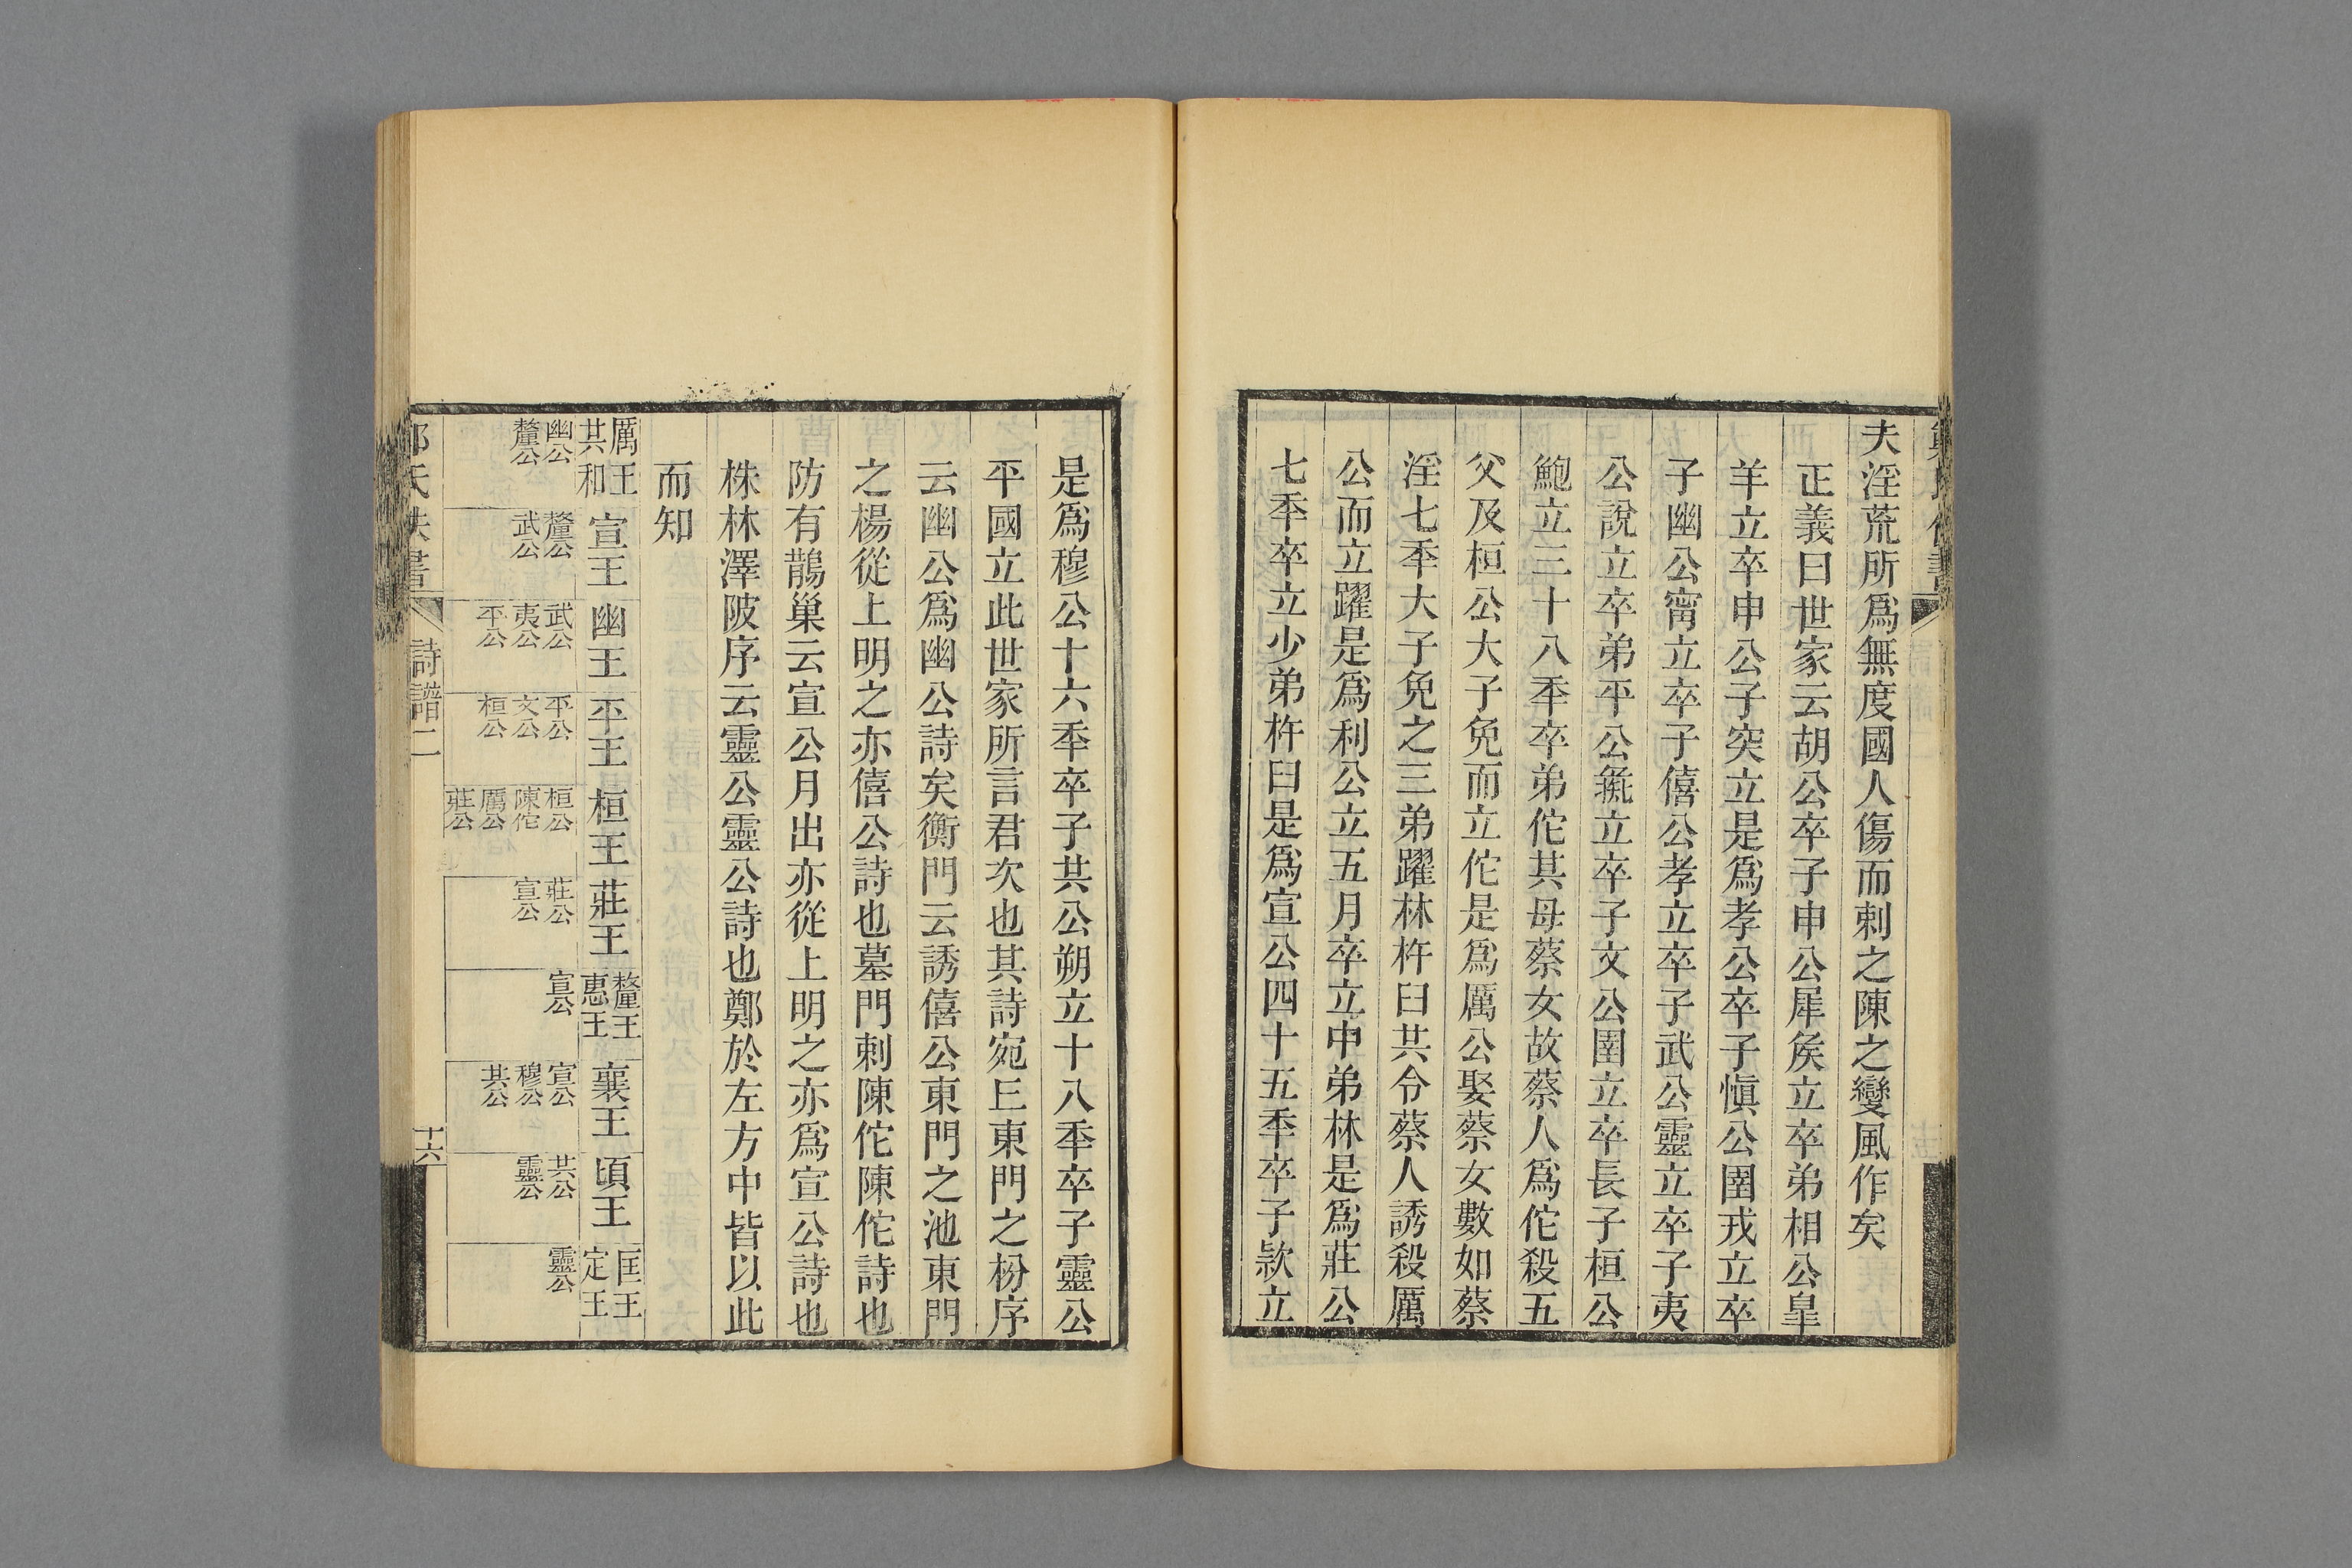 夫淫荒所爲無度國人傷而刺之陳之變風作矣
正義曰世家云胡公卒子申公犀矦立卒弟相公臯
羊立卒申公子突立是爲孝公卒子愼公圉戎立卒
子幽公甯立卒子僖公孝立卒子武公靈立卒子夷
公說立卒弟平公㷻立卒子文公圉立卒長子桓公
鮑立三十八秊卒弟佗其母蔡女故蔡人爲佗殺五
父及桓公大子免而立佗是爲厲公娶蔡女數如蔡
淫七秊大子免之三弟躍林杵臼共令蔡人誘殺厲
公而立躍是爲利公立五月卒立中弟林是爲莊公
七秊卒立少弟杵臼是爲宣公四十五秊卒子款立
是爲穆公十六秊卒子共公朔立十八秊卒子靈公
平國立此世家所言君次也其詩宛丘東門之枌序
云幽公爲幽公詩矣衡門云誘僖公東門之池東門
之楊從上明之亦僖公詩也墓門刺陳佗陳佗詩也
防有鵲巢云宣公月出亦從上明之亦爲宣公詩也
株林澤陂序云靈公靈公詩也鄭於左方中皆以此
而知
厲王
共和
宣王
幽王
平王
桓王
莊王
釐王
惠王
襄王
頃王
匡王
定王
幽公
釐公
釐公
武公
武公
夷公
平公
平公
文公
桓公
桓公
陳佗
厲公
莊公
莊公
宣公
宣公
宣公
穆公
共公
共公
靈公
靈公
詩譜二
十六